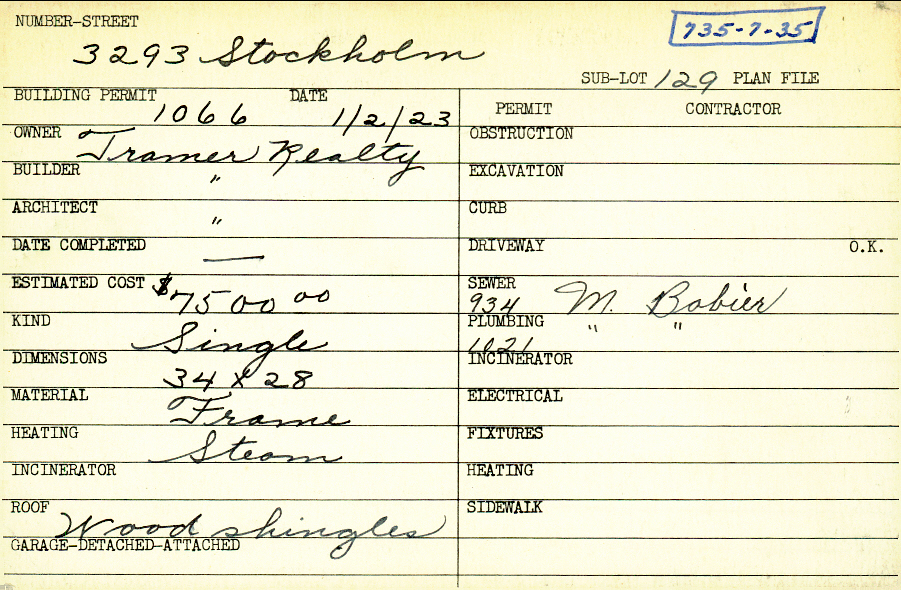 NUMBER-STREET
735-7-35
3293 Stockholm
SUB-LOT 129 PLAN FILE
BUILDING PERMIT 1066 DATE 1/2/23
OWNER Tramer Realty
BUILDER "
ARCHITECT "
DATE COMPLETED —
ESTIMATED COST $7500 00
KIND Single
DIMENSIONS 34 x 28
MATERIAL Frame
HEATING Steam
INCINERATOR
ROOF Wood shingles
GARAGE-DETACHED-ATTACHED
PERMIT CONTRACTOR
OBSTRUCTION
EXCAVATION
CURB
DRIVEWAY O.K.
SEWER 934 M. Bobier
PLUMBING 1021 " "
INCINERATOR
ELECTRICAL
FIXTURES
HEATING
SIDEWALK